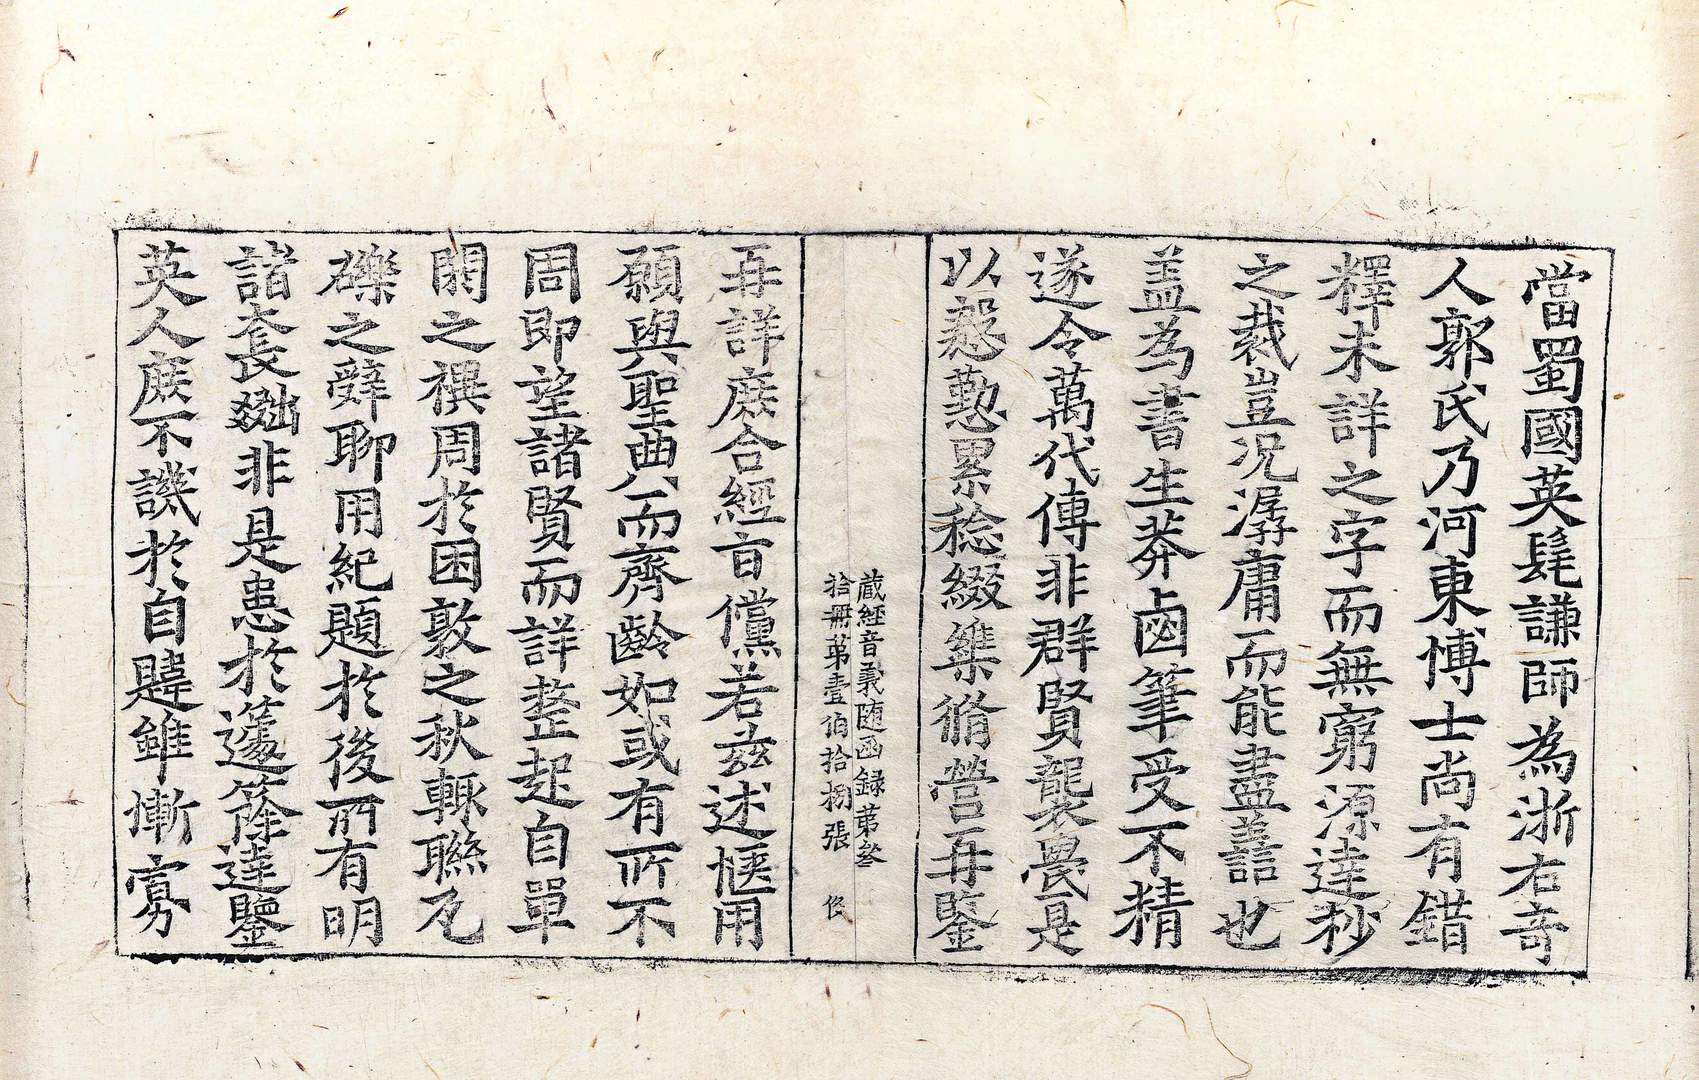 當蜀國英髦謙師為浙右奇
人郭氏乃河東博士尚有錯
釋未詳之字而無窮源達杪
之裁豈況潺庸而能盡善詰也
蓋為書生莽鹵筆受不精
遂令萬代傳非群賢襲畏是
以慇懃累稔綴緝脩營再鑒
藏經音義随函録苐叄
拾冊苐壹伯拾捌張
再詳庶合經旨儻若茲述愜用
願與聖典而齊齡如或有所不
周即望諸賢而詳整起自單
閼之禩周於困敦之秋輙聮瓦
礫之辤聊用紀題於後所有明
諸袤長綴非是恚於籧篨達鑒
英人庻不譏於自韙雖慚寡